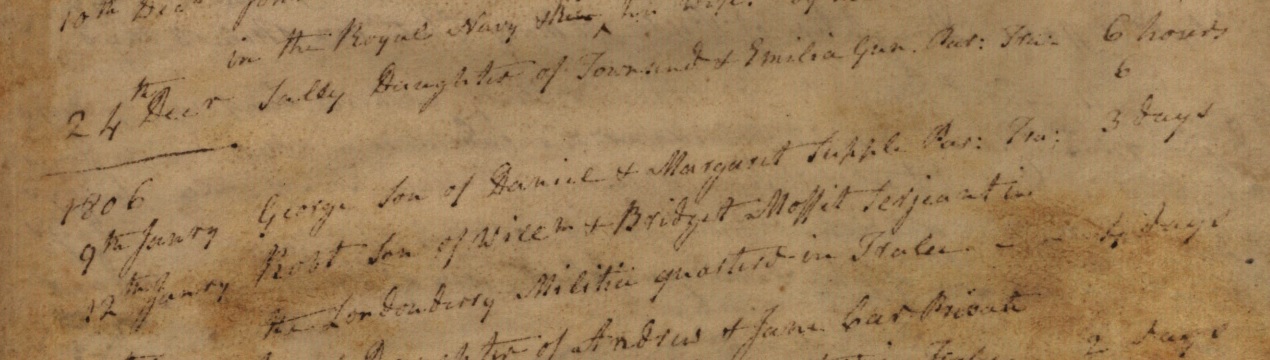 10th Decr
in the Royal Navy & his wife
24th Decr Sally Daughter of Townsend & Emilia Gun. Par: Tra: 6 hours
6
1806
9th Janry George Son of Daniel & Margaret Supple Par: Tra: 3 days
12th Janry Robt Son of Willm & Bridget Moffit Serjeant in
the Londonderry Militia quarterd in Tralee - - 4 days
Daughter of Andrew & Jane Car Private
Tralee 2 days